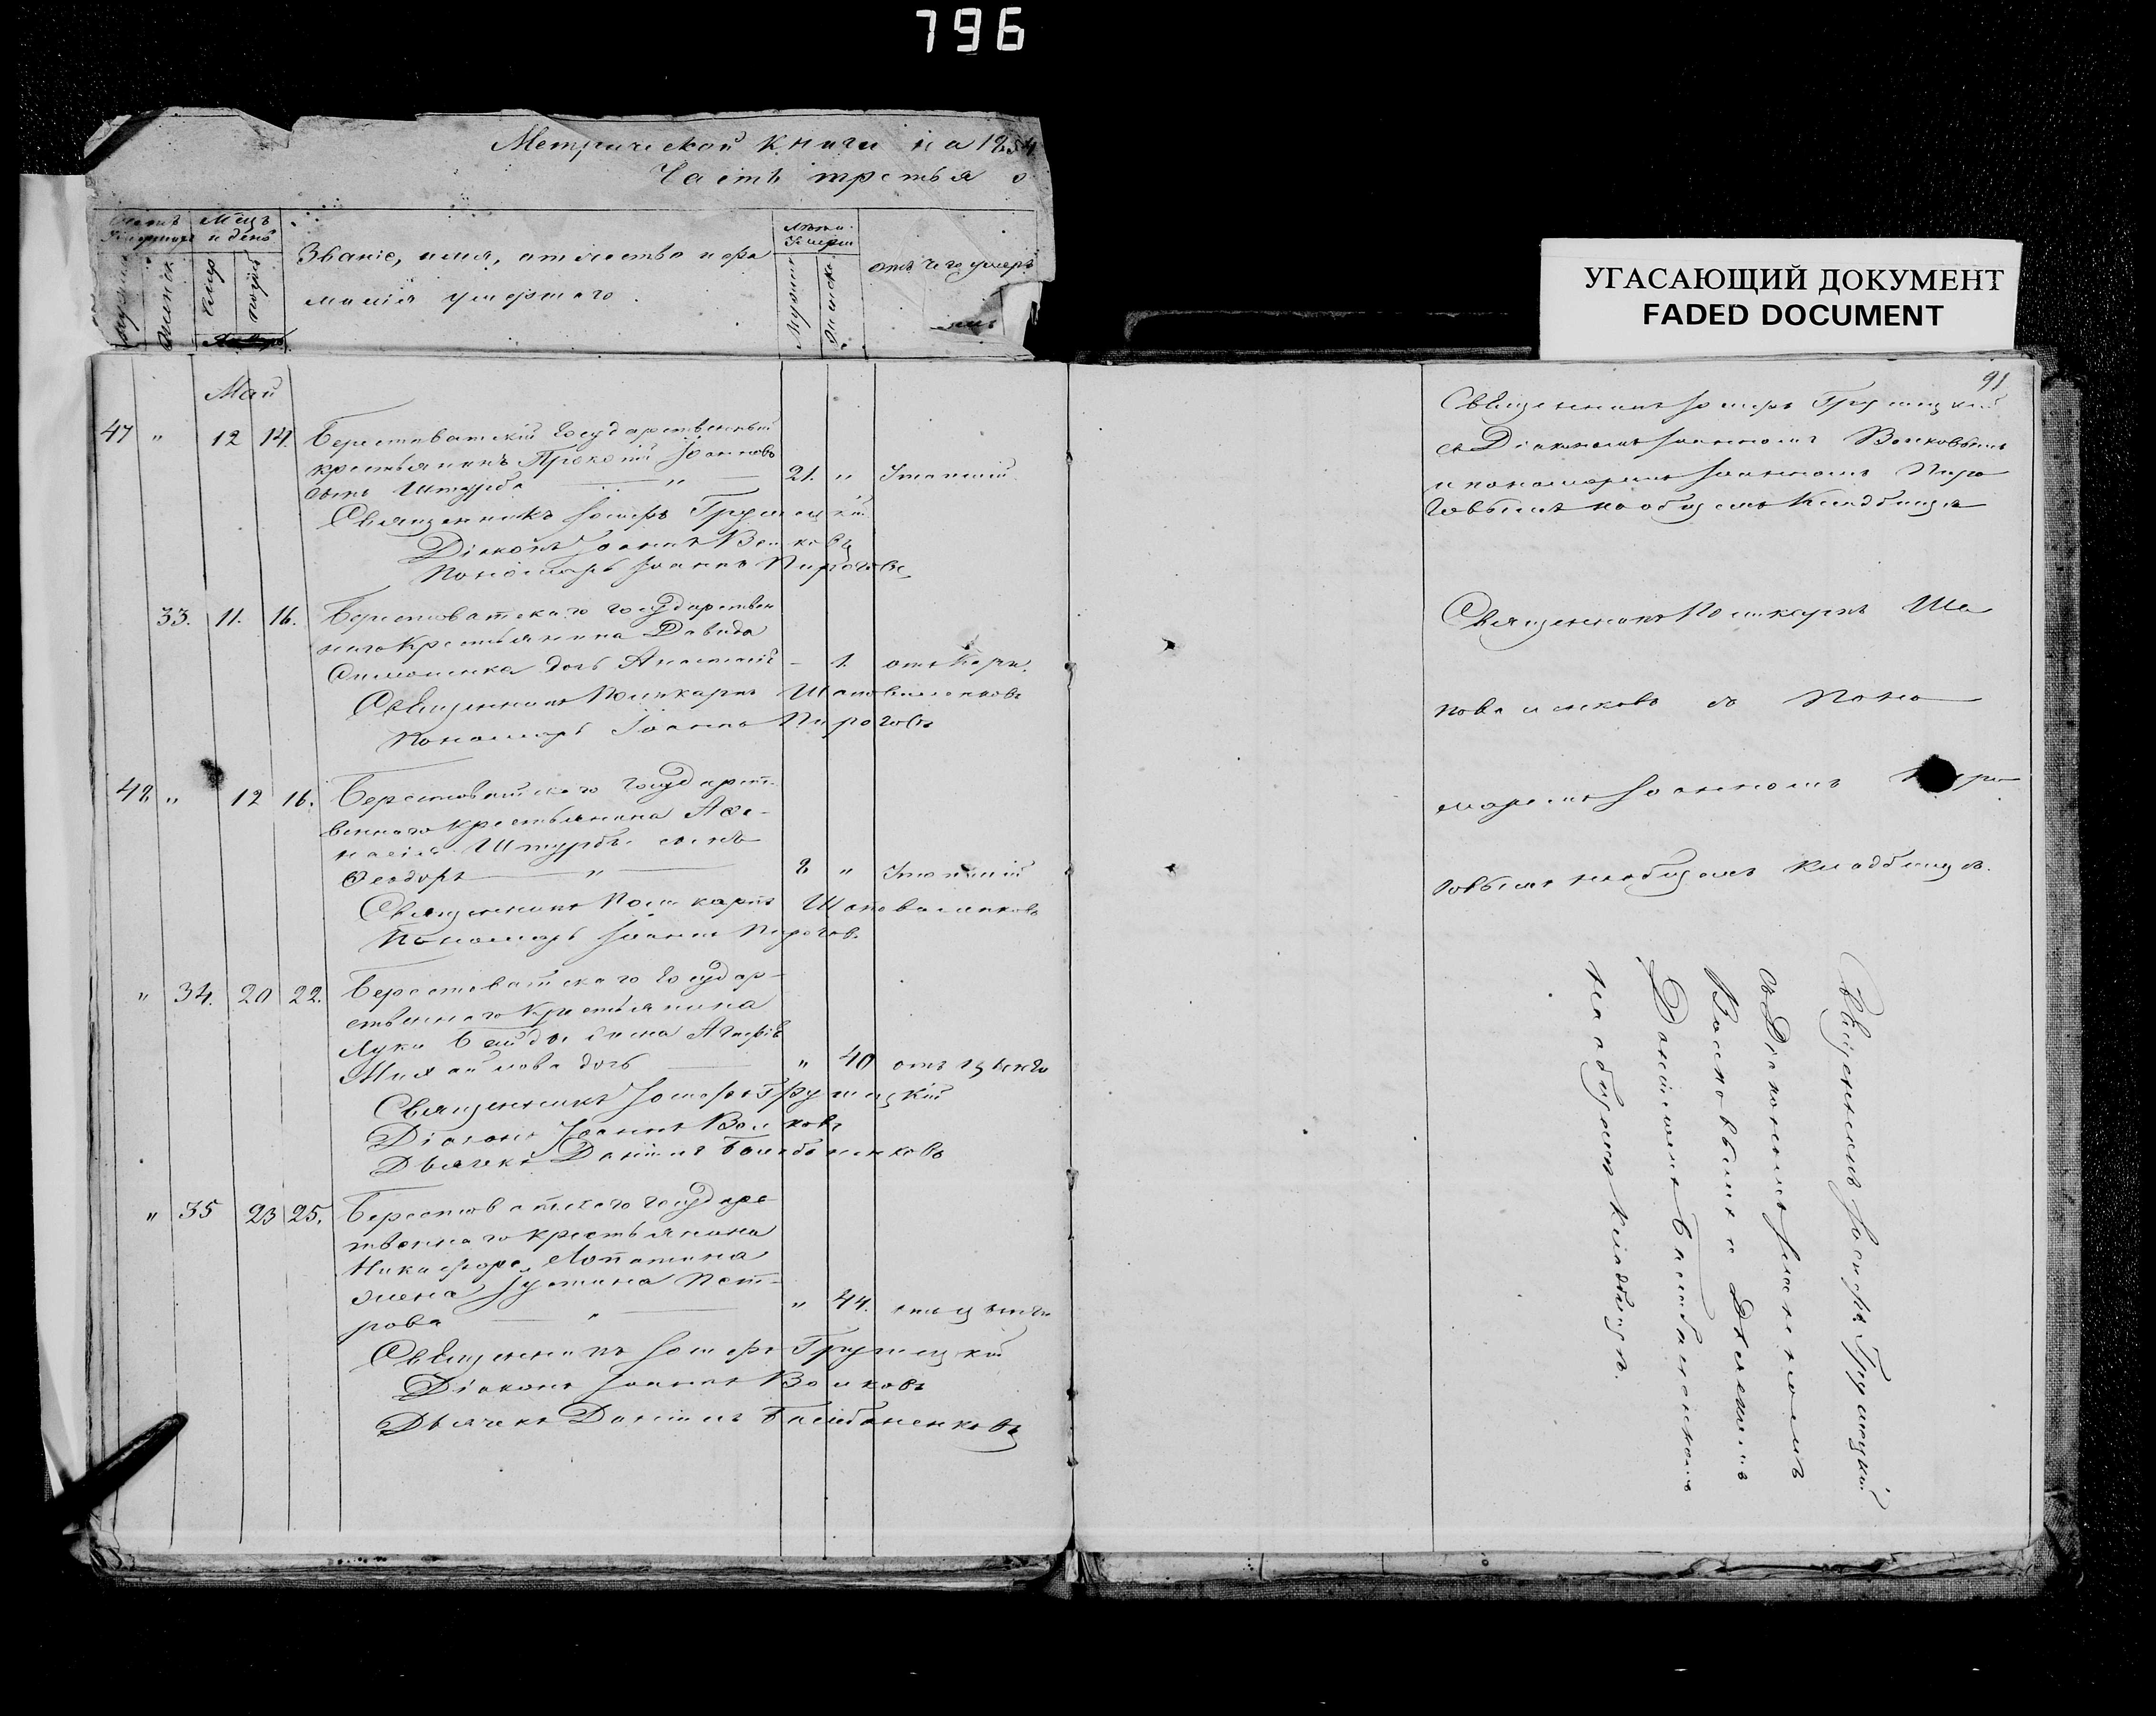 796
Метрической книги на 1854
Часть третья о
УГАСАЮЩИЙ ДОКУМЕНТ
FADED DOCUMENT
Мѣсяцъ
и день
Званіе, имя, отчество и фа
милія умершаго.
Лѣта
Умерш
отъ чего умеръ
Май
47 " 12 14. Берестоватскій Государственный
крестьянинъ Прокопій Іоанновъ
сынъ Штурба — " — 21. " Утопшій
Священникъ Іосифъ Грушецкій
Діаконъ Іоаннъ Волковъ
Пономарь Іоаннъ Пироговъ
33. 11. 16. Берестоватскаго государствен
наго крестьянина Давида
дочь Анастасія - 1. отъ Кори.
Священникъ Поликарпъ Шаповаленковъ
Пономарь Іоаннъ Пироговъ
48 " 12 16. Берестоватскаго Государст-
веннаго крестьянина Афа-
насія Штурбы сынъ
Ѳеодоръ — " — 8 " Утопшій
Священникъ Поликарпъ Шаповаленковъ
Пономарь Іоаннъ Пироговъ
" 34. 20 22. Берестоватскаго Государ-
ственнаго Крестьянина
Луки жена Агафія
Михайлова дочь — " 40 отъ
Священникъ Іосифъ Грушецкій
Діаконъ Іоаннъ Волковъ
Дьячекъ Даніилъ Балабаненковъ
" 35 23 25. Берестоватскаго государс
твеннаго крестьянина
Никифора Лопатина
жена Іустина Пет-
рова — " — " 44.
Священникъ Іосифъ Грушецкій
Діаконъ Іоаннъ Волковъ
Дьячекъ Даніилъ Балабаненковъ
91
Священникъ Іосифъ Грушецкій
съ Діакономъ Іоанномъ Волковымъ
и пономаремъ Іоанномъ Пиро
говымъ на общемъ Кладбищѣ
Священникъ Поликарпъ Ша
поваленковъ съ Поно
маремъ Іоанномъ Пиро
говымъ на общемъ кладбищѣ.
Священникъ Іосифъ Грушецкій
съ Діакономъ Іоанномъ
Волковымъ и Дьячкомъ
Даніиломъ Балабаненковымъ
на общемъ кладбищѣ.